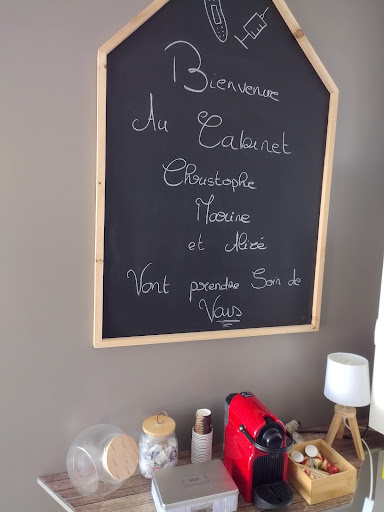 Bienvenue
Au Cabinet
Christophe
Marine
et Alizé
Vont prendre Soin de
Vous